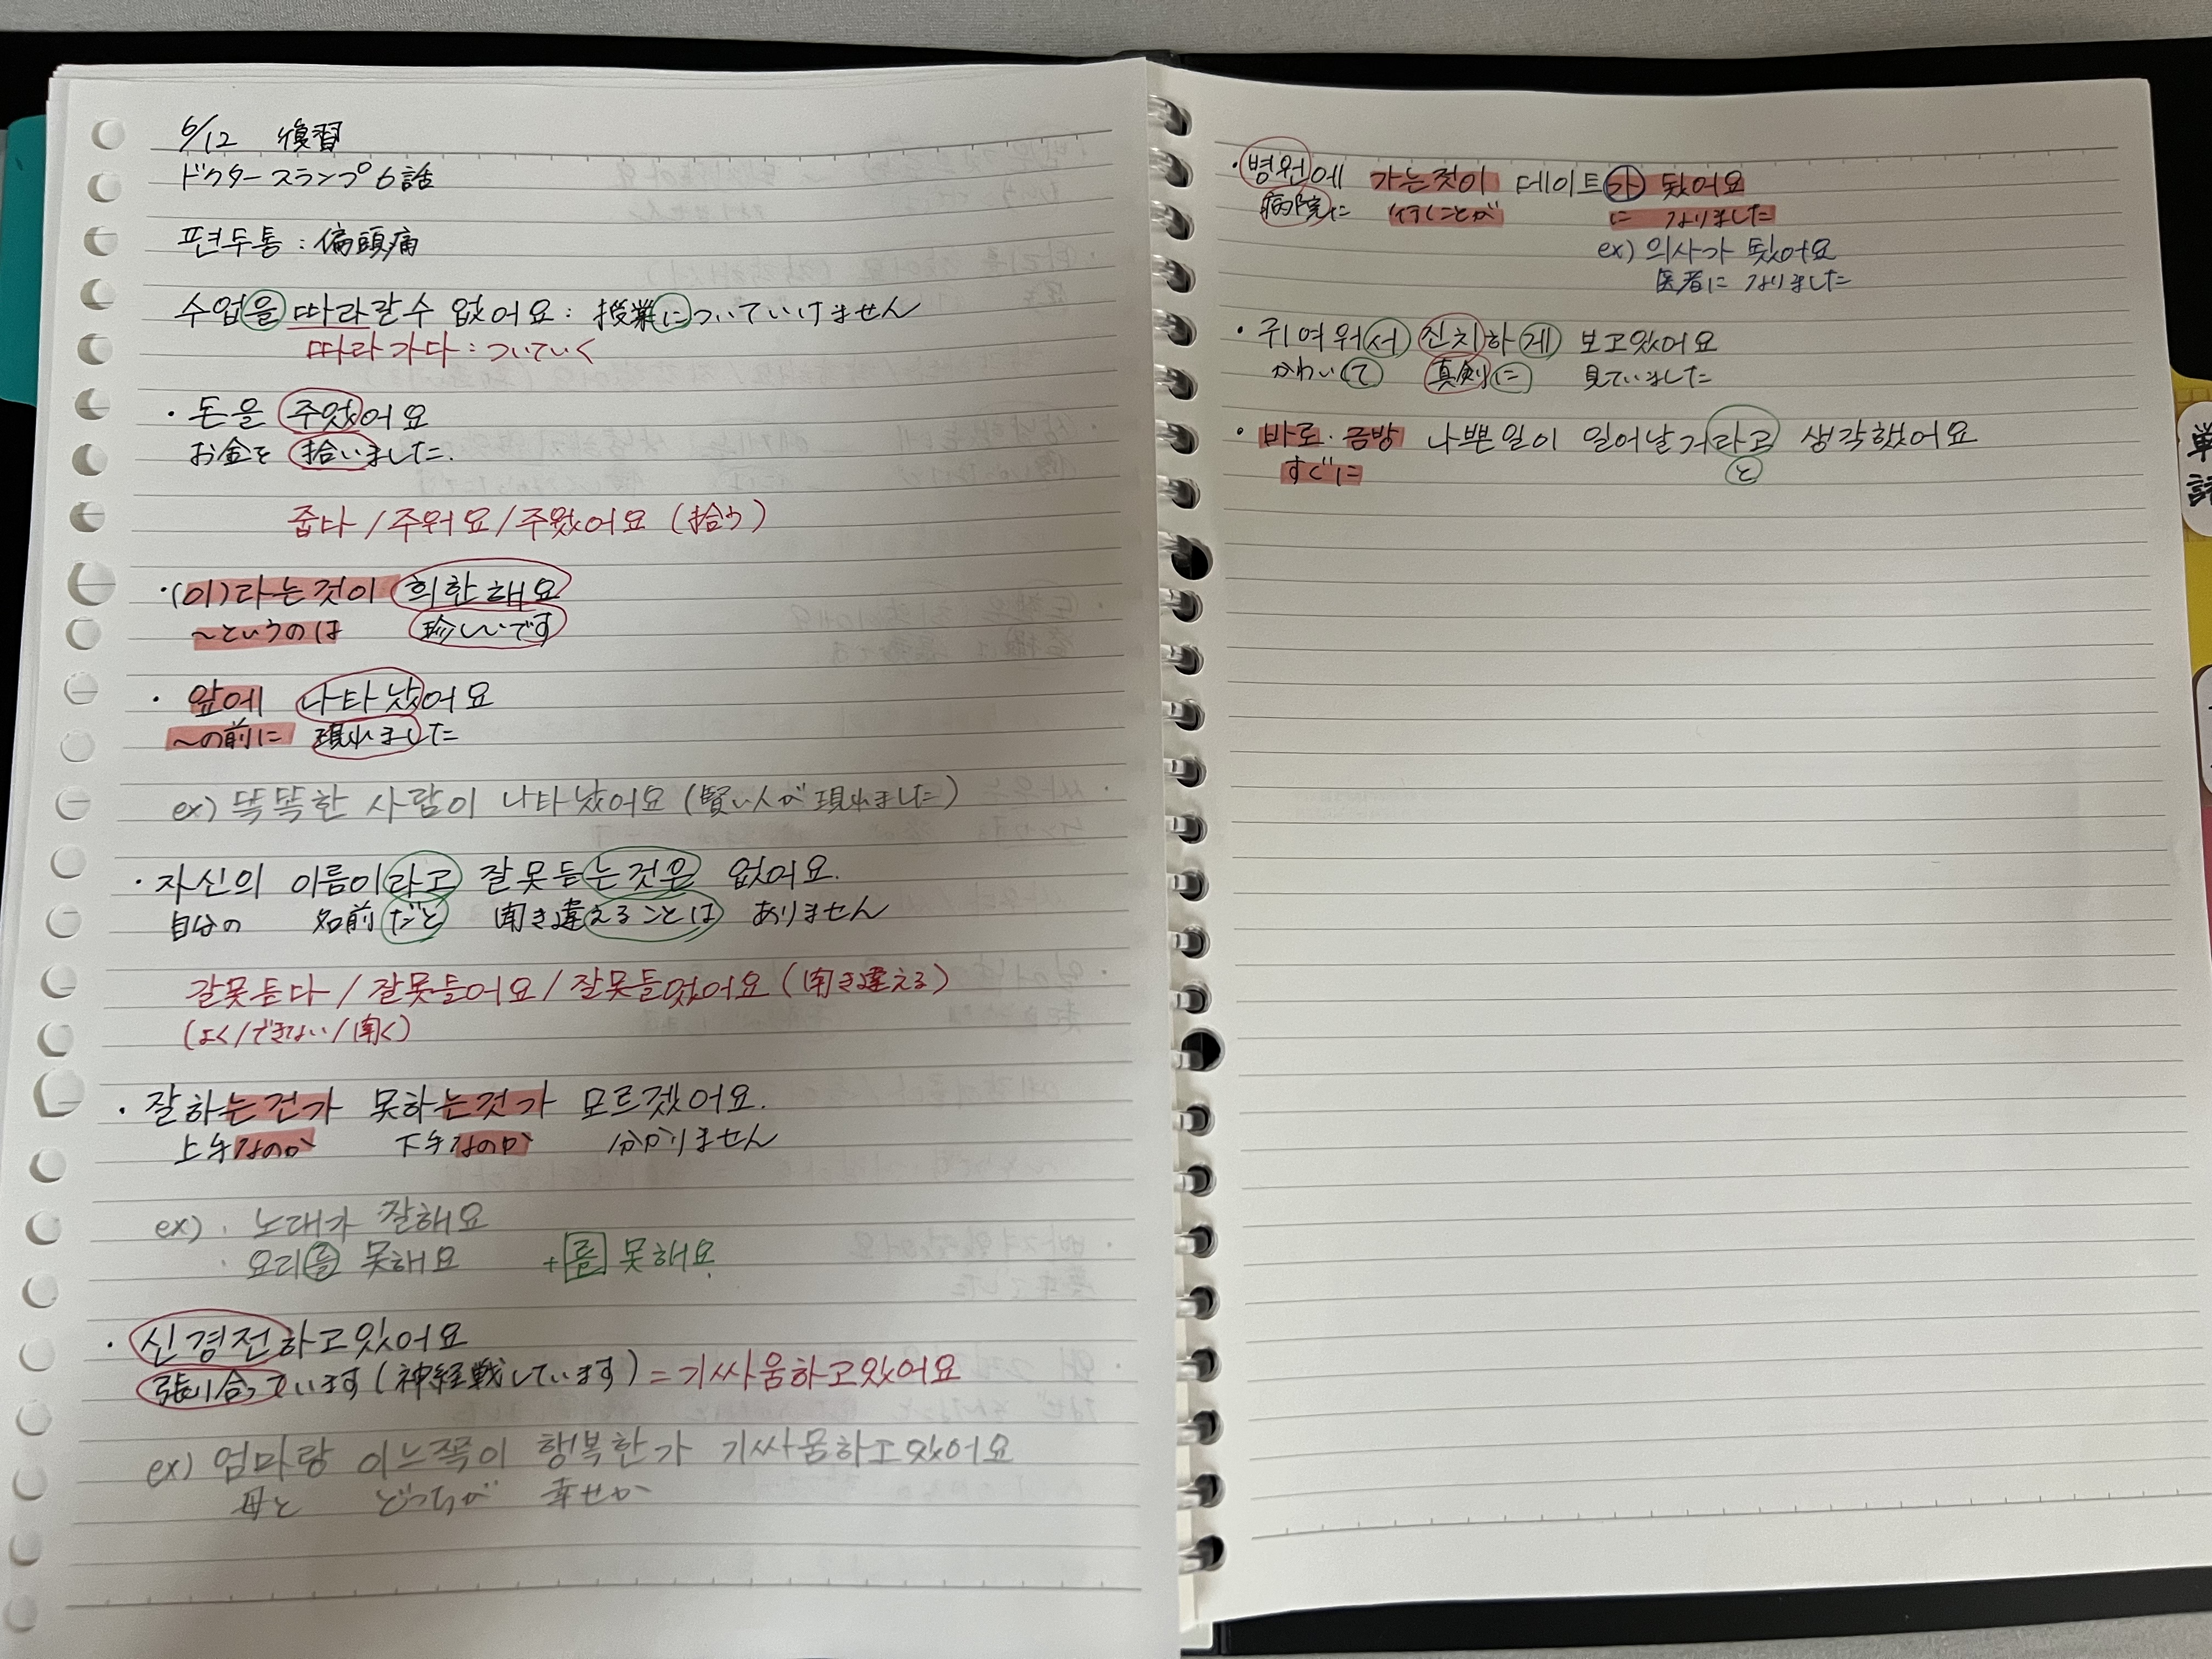 6/12 復習
ドクタースランプ6話
편두통：偏頭痛
수업을 따라갈 수 없어요：授業についていけません
따라가다：ついていく
・돈을 주웠어요
お金を 拾いました.
줍다/주워요/주웠어요（拾う）
・(이)라는것이 희한해요
〜というのは 珍しいです
・앞에 나타났어요
〜の前に 現れました
ex) 똑똑한 사람이 나타났어요（賢い人が現れました）
・자신의 이름이라고 잘못듣는것은 없어요.
自分の 名前だと 聞き違えることは ありません
잘못듣다/잘못들어요/잘못들었어요（聞き違える）
（よく/できない/聞く）
・잘하는건가 못하는것가 모르겠어요.
上手なのか 下手なのか 分かりません
ex)・노래가 잘해요
・요리를 못해요 +를 못해요.
・신경전하고있어요
張り合っています（神経戦しています）＝기싸움하고있어요
ex) 엄마랑 어느쪽이 행복한가 기싸움하고있어요
母と どっちが 幸せか
・병원에 가는것이 데이트가 됐어요
病院に 行くことが に なりました
ex) 의사가 됐어요
医者に なりました
・귀여워서 진지하게 보고있어요
かわいくて 真剣に 見ていました
・바로・금방 나쁜일이 일어날거라고 생각했어요
すぐに と
戦